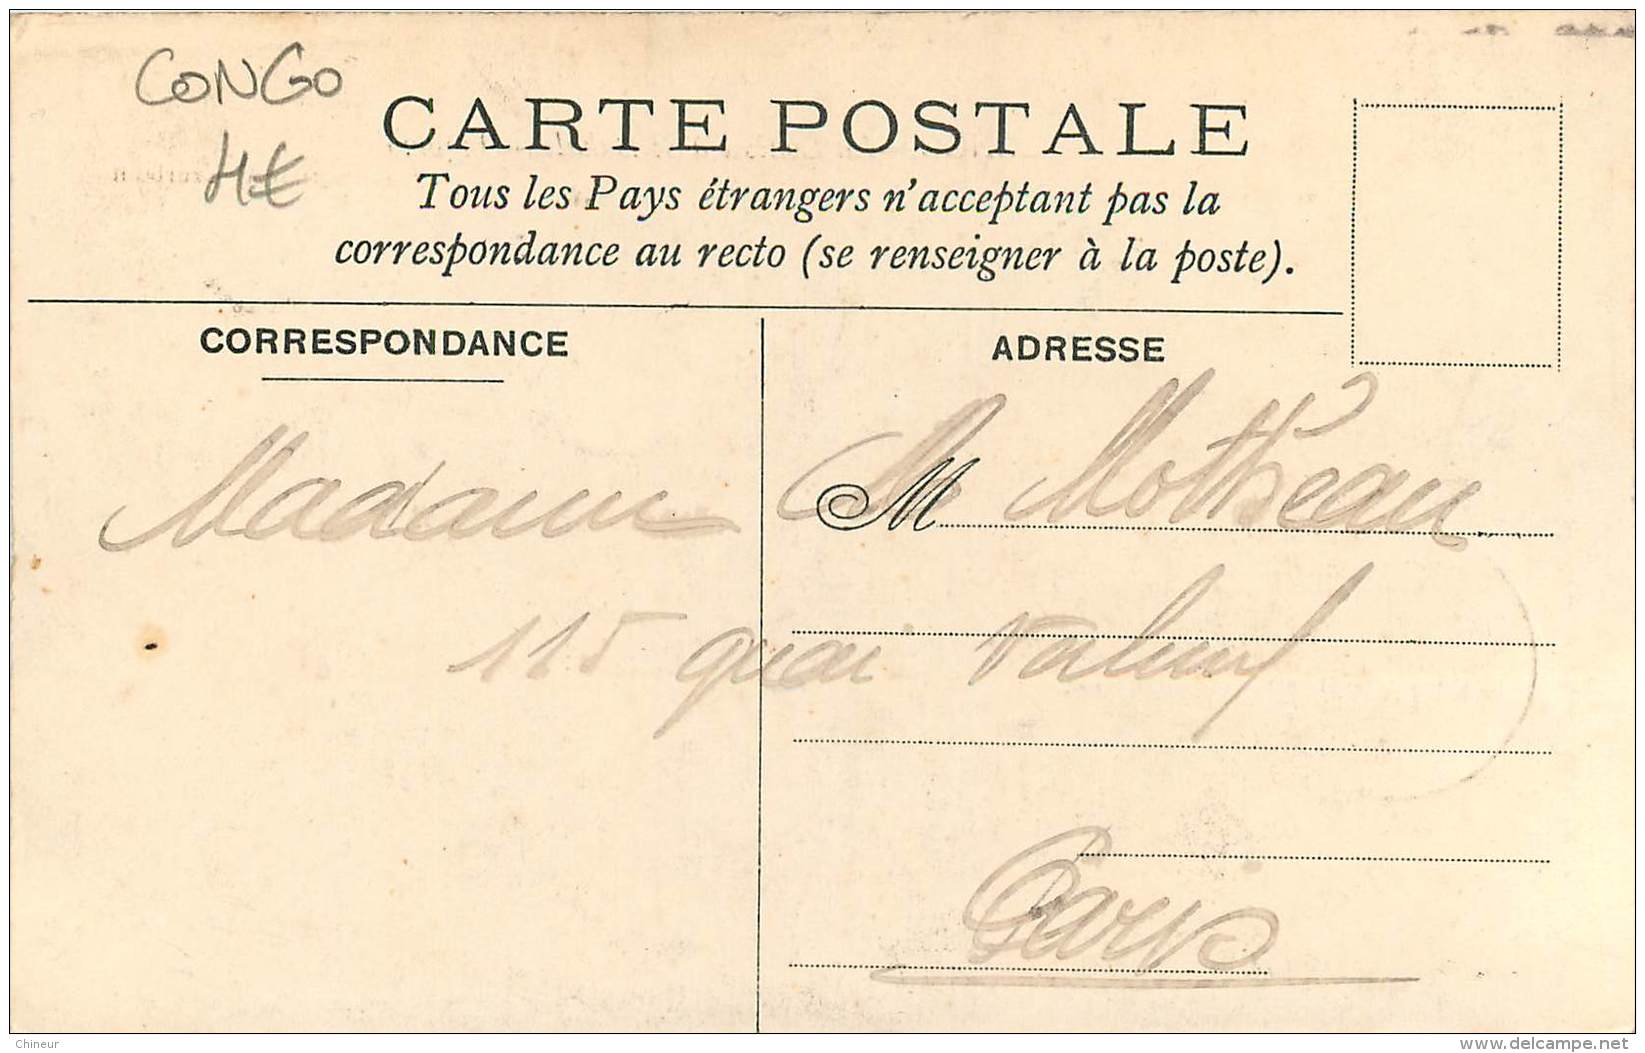 CONGO
4€
CARTE POSTALE
Tous les Pays étrangers n'acceptant pas la
correspondance au recto (se renseigner à la poste).
CORRESPONDANCE
ADRESSE
Madame M Motheau
115 quai
Paris
Chineur
www.delcampe.net